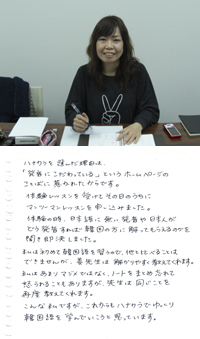 ハナカラを選んだ理由は、
「発音にこだわっている」というホームページの
ことばに惹かれたからです。
体験レッスンを受けてその日のうちに
マンツーマンレッスンを申し込みました。
体験の時、日本語に無い発音や日本人が
どう発音すれば韓国の方に解ってもらえるのかを
聞き即決しました。
私は初めて韓国語を習うので、他と比べることは
できませんが、先生は解かりやすく教えてくれます。
私はあまりマジメではなく、ノートをまとめ忘れて
怒られることもありますが、先生は同じことを
再度教えてくれます。
こんな私ですが、これからもハナカラでゆっくり
韓国語を学んでいこうと思っています。